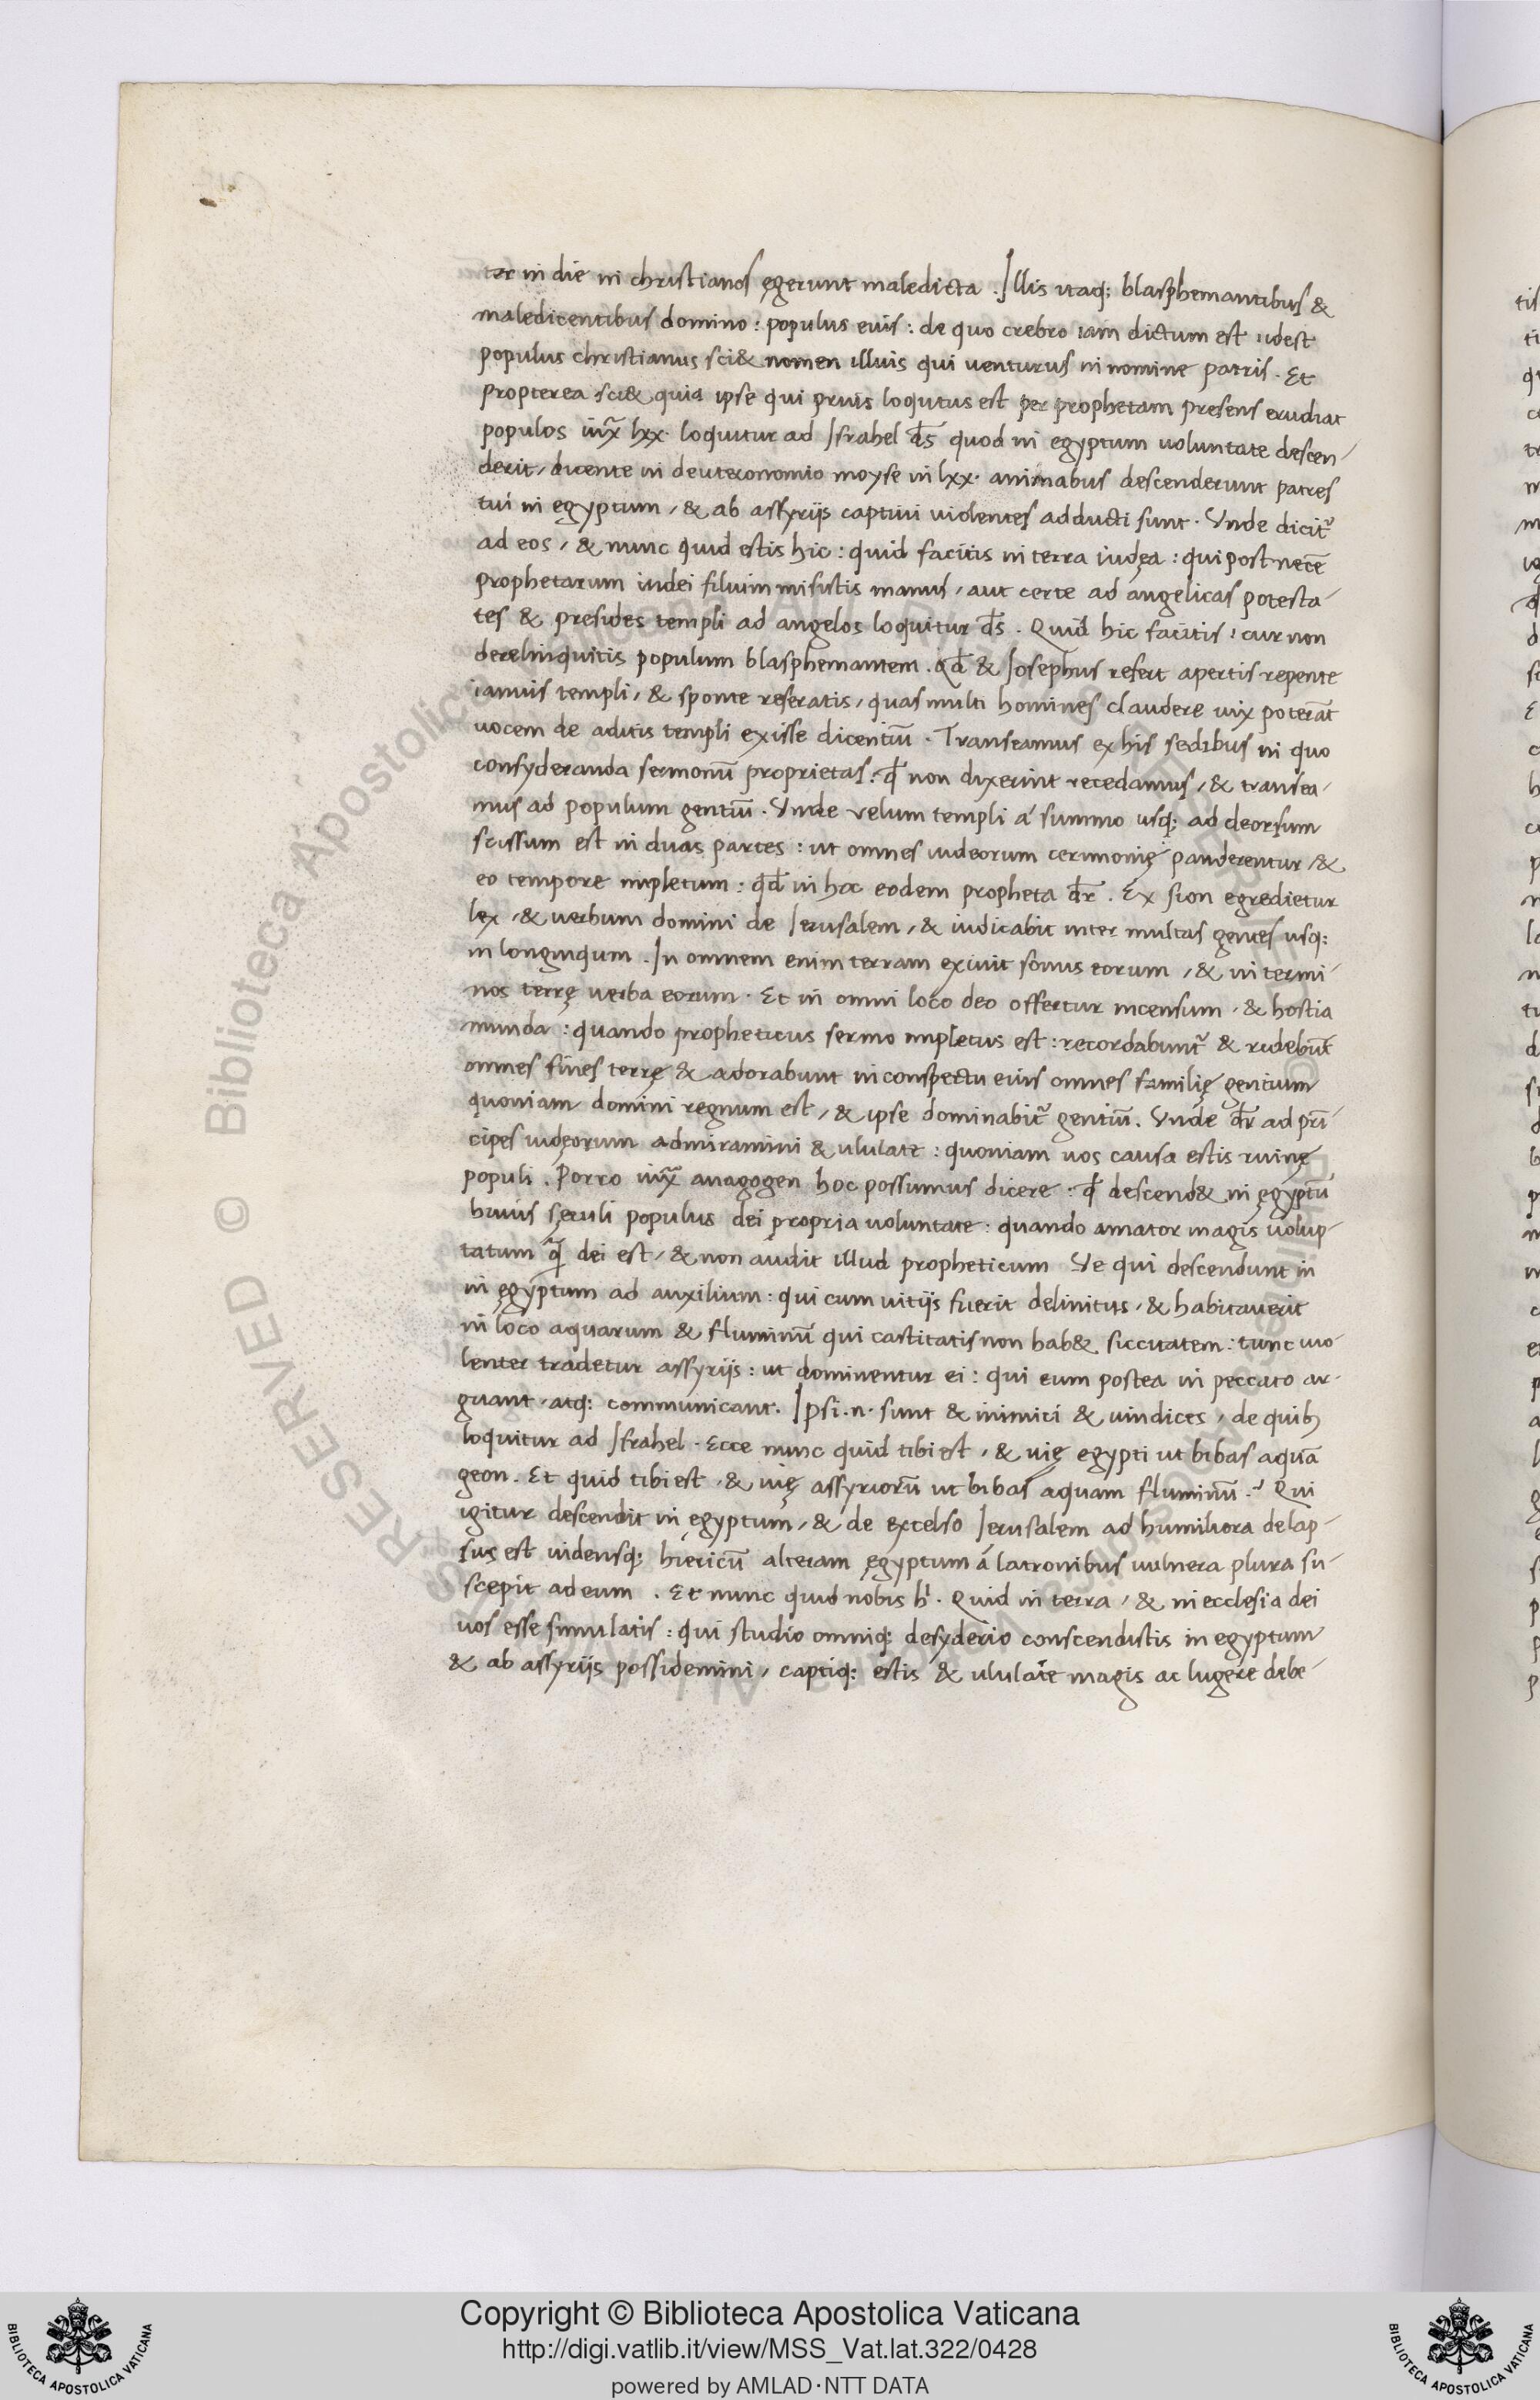 ter in die in christianos ęgerunt maledicta . Illis itaq; blasphemantibus &
maledicentibus domino : populus eius : de quo crebro iam dictum est idest
populus christianus sci& nomen illius qui uenturus in nomine patris . Et
propterea sci& quia ipse qui prius loqutus est per prophetam presens erudiat
populos iuxͣ lxx · loquitur ad Israhel d̄s quod in egyptum uoluntate descen-
derit, dicente in deuteronomio moyse in lxx · animabus descenderunt patres
tui in egyptum , & ab assyrijs captiui uiolentes adducti sunt . Vnde dicit᷑
ad eos , & nunc quid estis hic : quid facitis in terra iudęa : qui post necē
prophetarum in dei filium misistis manus , aut certe ad angelicas potesta-
tes & presides templi ad angelos loquitur d̄s . Quid hic facitis : cur non
derelinquitis populum blasphemantem . qd̄ & Iosephus refert apertis repente
ianuis templi , & sponte reseratis , quas multi homines claudere uix poterāt
uocem de aditis templi exisse dicentiū . Transeamus ex his sedibus in quo
consyderanda sermonū proprietas : q̄ non dixerint recedamus , & transea-
mus ad populum gentiū . Vnde velum templi á summo usq; ad deorsum
scissum est in duas partes : ut omnes iudeorum cerimonię panderentur , &
eo tempore impletum : qd̄ in hoc eodem propheta dr̄ . Ex sion egredietur
lex , & uerbum domini de Ierusalem , & iudicabit inter multas gentes usq;
in longinqum . In omnem enim terram exiuit sonus eorum , & in termi-
nos terrę uerba eorum . Et in omni loco deo offertur incensum , & hostia
munda : quando propheticus sermo impletus est : recordabunt᷑ & ridebūt
omnes fines terrę & adorabunt in conspectu eius omnes familię gentium
quoniam domini regnum est , & ipse dominabit᷑ gentiū . Vnde dr̄ ad prī-
cipes iudęorum admiramini & ululate : quoniam uos causa estis ruinę
populi . Porro iuxͣ anagogen hoc possumus dicere : q̄ descend& in ęgyptū
huius sęculi populus dei propria uoluntate : quando amator magis uolup-
tatum q̄ dei est , & non audit illud propheticum Ve qui descendunt in
in ęgyptum ad auxilium : qui cum uitijs fuerit delinitus , & habitauerit
in loco aquarum & fluminū qui castitatis non hab& siccitatem : tunc uio-
lenter tradetur assyrijs : ut dominentur ei : qui eum postea in peccato ar-
guant , atq; communicant . Ipsi .n. sunt & inimici & uindices , de quib;
loquitur ad Israhel . Ecce nunc quid tibi est , & uię egypti ut bibas aquā
geon . Et quid tibi est , & uię assyriorū ut bibas aquam fluminū . ? Qui
igitur descendit in ęgyptum , & de excelso Ierusalem ad humiliora delap-
sus est uidensq; hiericū alteram ęgyptum á latronibus uulnera plura su-
scepit ad eum . Et nunc quid nobis hͥ . Quid in terra , & in ecclesia dei
uos esse simulatis : qui studio omniq; desyderio conscendistis in egyptum
& ab assyrijs possidemini , captiq; estis & ululate magis ac lugere debe-
Copyright © Biblioteca Apostolica Vaticana
http://digi.vatlib.it/view/MSS_Vat.lat.322/0428
powered by AMLAD·NTT DATA